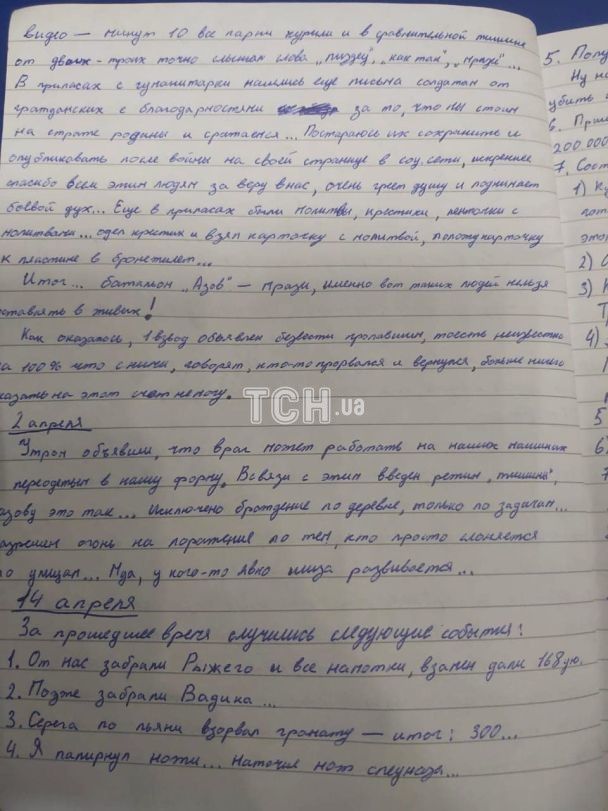 видео — минут 10 все парни курили и в сравнительной тишине
от двоих-троих точно слышал слова „пиздец", „как так", „мрази"...
В припасах с гуманитарки нашлись еще письма солдатам от
гражданских с благодарностями за то, что мы стоим
на страже родины и сражаемся... Постараюсь их сохранить и
опубликовать после войны на своей странице в соц.сети, искреннее
спасибо всем этим людям за веру в нас, очень греет душу и поднимает
боевой дух... Еще в припасах были молитвы, крестики, ленточки с
молитвами... одел крестик и взял карточку с молитвой, положу карточку
к пластине в бронежилет...
Итог... батальон „Азов" — мрази, именно вот таких людей нельзя
оставлять в живых!
Как оказалось, 1 взвод объявлен безвести пропавшим, тоесть неизвестно
на 100% что с ними, говорят, кто-то прорвался и вернулся, больше ничего
сказать на этот счет не могу.
ТСН.ua
2 апреля
Утром объявили, что враг может работать на наших машинах
переодетым в нашу форму. Всвязи с этим введен режим „тишины",
азову это так... Исключено брождение по деревне, только по задачам...
азрешен огонь на поражение по тем, кто просто слоняется
по улицам... Мда, у кого-то явно шиза развивается...
14 апреля
За прошедшее время случились следующие события:
1. От нас забрали Рыжего и все напотки, взамен дали 168
2. Позже забрали Вадика...
3. Серега по пьяни взорвал гранату — итог: 300...
4. Я ножи... наточил нож спецназа...
5. Полу
Ну на
убить
6. При
200.000
7. Сост
1) К
пот
это
2)
3)
4)
5
6